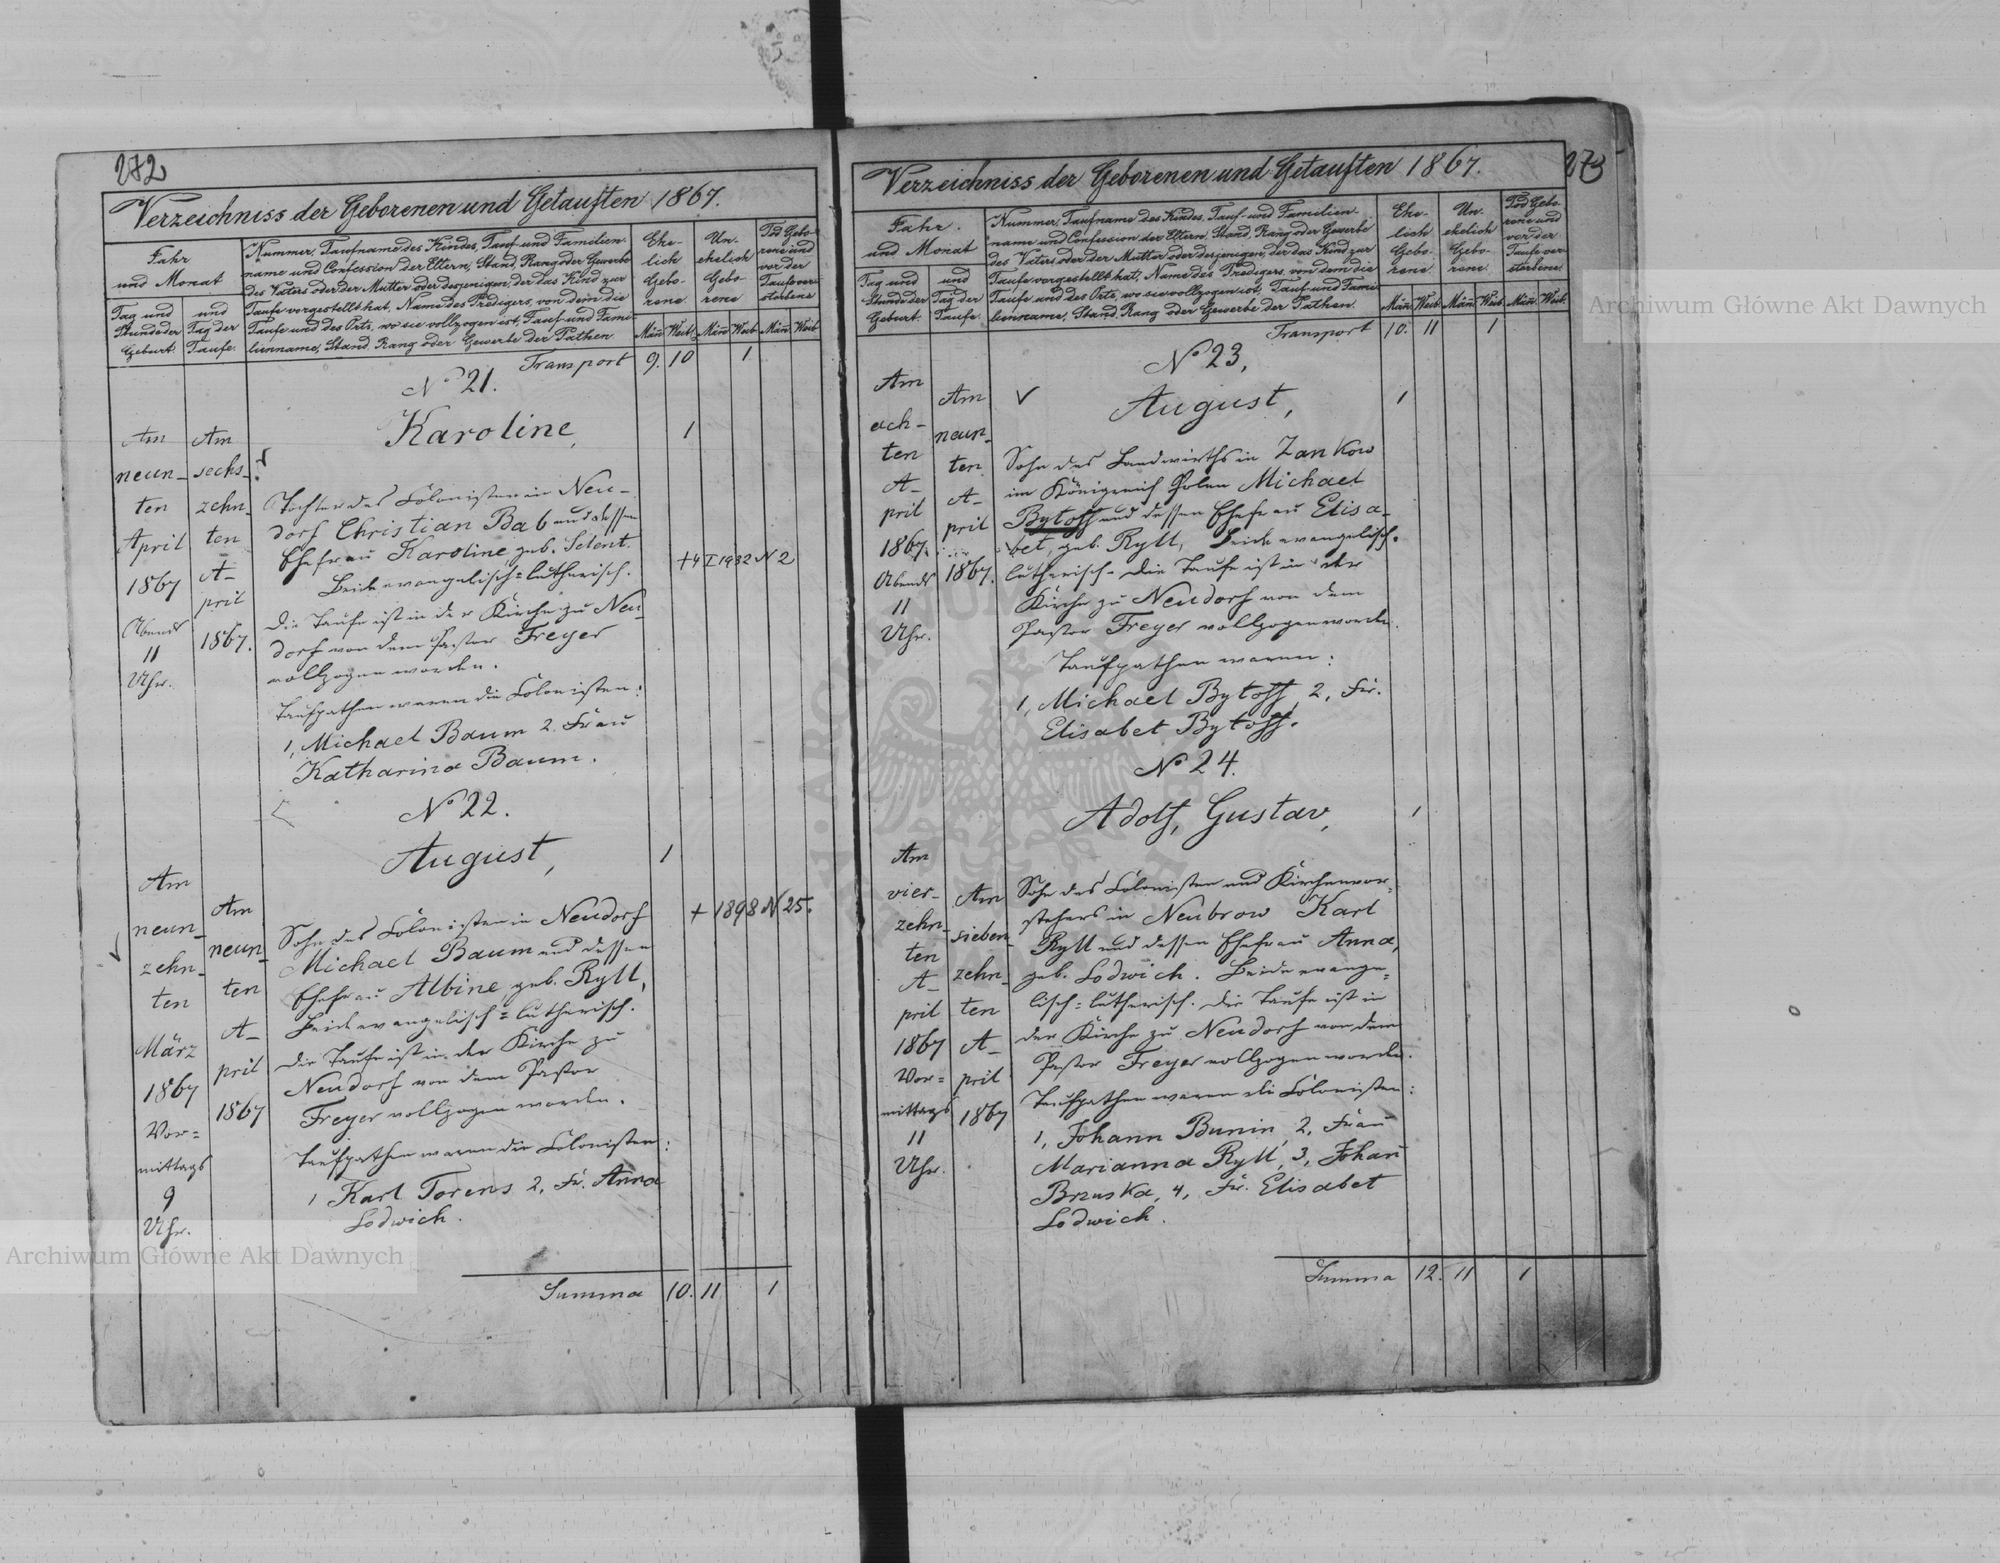 272
Verzeichniss der Geborenen und Getauften 1867.
Jahr
und Monat
Tag und
Stunde der
Geburt.
und
Tag der
Taufe.
Nummer, Taufname des Kindes, Tauf- und Familien-
name und Confession der Eltern, Stand, Rang oder Gewerbe
des Vaters oder der Mutter oder desjenigen, der das Kind zur
Taufe vorgestellt hat, Name des Predigers, von dem die
Taufe und des Orts, wo sie vollzogen ist, Tauf- und Fami-
lienname, Stand, Rang oder Gewerbe der Pathen.
Ehe-
lich
Gebo-
rene
Un-
ehelich
Gebo-
rene
Tod Gebo-
rene und
vor der
Taufe ver-
storbene
Män. Weib. Män. Weib. Män. Weib.
Transport 9. 10 1
No 21.
Karoline, 1
Am
neun-
ten
April
1867
Abends
11
Uhr.
Am
sechs-
zehn-
ten
A-
pril
1867.
Tochter des Colonisten in Neu-
dorf Christian Bab und dessen
Ehefrau Karoline, geb. Selent.
Beide evangelisch=lutherisch.
+ 4 I 1932 N 2
Die Taufe ist in der Kirche zu Neu-
dorf von dem Pastor Freyer
vollzogen worden.
Taufpathen waren die Colonisten:
1, Michael Baum 2. Frau
Katharina Baum.
No 22.
August, 1
Am
neun-
zehn-
ten
März
1867
Vor=
mittags
9
Uhr.
Am
neun-
ten
A-
pril
1867
Sohn des Colonisten in Neudorf
+ 1898 N 25.
Michael Baum und dessen
Ehefrau Albine, geb. Ryll,
Beide evangelisch=lutherisch.
Die Taufe ist in der Kirche zu
Neudorf von dem Pastor
Freyer vollzogen worden.
Taufpathen waren die Colonisten:
1 Karl Torens 2, Fr. Anna
Lodwich.
Summa 10. 11 1
273
Verzeichniss der Geborenen und Getauften 1867.
Jahr.
und Monat
Tag und
Stunde der
Geburt.
und
Tag der
Taufe.
Nummer, Taufname des Kindes, Tauf- und Familien-
name und Confession der Eltern, Stand, Rang oder Gewerbe
des Vaters oder der Mutter oder desjenigen, der das Kind zur
Taufe vorgestellt hat, Name des Predigers, von dem die
Taufe und des Orts, wo sie vollzogen ist, Tauf- und Fami-
lienname, Stand, Rang oder Gewerbe der Pathen.
Ehe-
lich
Gebo-
rene
Un-
ehelich
Gebo-
rene
Tod Gebo-
rene und
vor der
Taufe ver-
storbene.
Män. Weib. Män. Weib. Män. Weib.
Transport 10. 11 1
No 23,
August, 1
Am
ach-
ten
A-
pril
1867.
Abends
11
Uhr.
Am
neun-
ten
A-
pril
1867.
Sohn des Landwirths in Zankow
im Königreich Polen Michael
Bytoff und dessen Ehefrau Elisa-
bet, geb. Ryll, Beide evangelisch-
lutherisch. Die Taufe ist in der
Kirche zu Neudorf von dem
Pastor Freyer vollzogen worden.
Taufpathen waren:
1, Michael Bytoff, 2, Fr.
Elisabet Bytoff.
No 24.
Adolf, Gustav, 1
Am
vier-
zehn-
ten
A-
pril
1867
Vor=
mittags
11
Uhr.
Am
sieben-
zehn-
ten
A-
pril
1867
Sohn des Colonisten und Kirchenvor-
stehers in Neubrow Karl
Ryll und dessen Ehefrau Anna,
geb. Lodwich. Beide evange-
lisch=lutherisch. Die Taufe ist in
der Kirche zu Neudorf von dem
Pastor Freyer vollzogen worden.
Taufpathen waren die Colonisten:
1, Johann Bunin, 2, Frau
Marianna Ryll, 3, Johan̄
Brzuska, 4, Fr. Elisabet
Lodwich.
Summa 12. 11 1
Archiwum Główne Akt Dawnych
Archiwum Główne Akt Dawnych